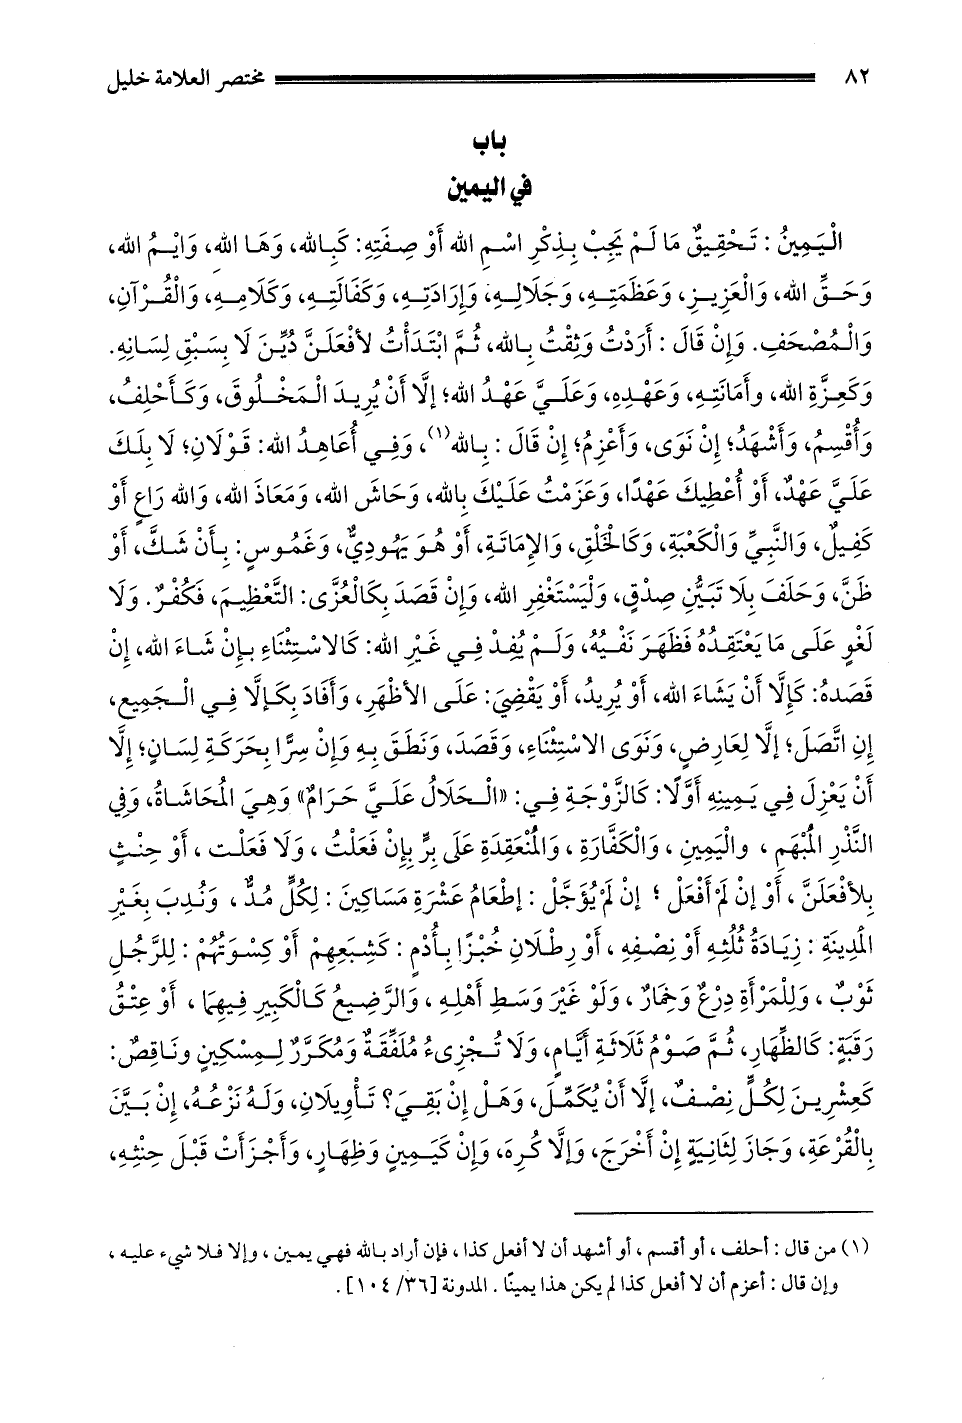 ٨٢ مختصر العلامة خليل
باب
في اليمين
الْيَمِينُ : تَحْقِيقُ مَا لَمْ يَجِبْ بِذِكْرِ اسْمِ الله أَوْ صِفَتِهِ: كَبِالله، وَهَا الله، وَايْمُ الله،
وَحَقِّ الله، وَالْعَزِيزِ، وَعَظَمَتِهِ، وَجَلَالِهِ، وَإِرَادَتِهِ، وَكَفَالَتِهِ، وَكَلَامِهِ، وَالْقُرْآنِ،
وَالْمُصْحَفِ. وَإِنْ قَالَ : أَرَدْتُ وَثِقْتُ بِالله، ثُمَّ ابْتَدَأْتُ لأفْعَلَنَّ دُيِّنَ لَا بِسَبْقِ لِسَانِهِ.
وَكَعِزَّةِ الله، وأَمَانَتِهِ، وَعَهْدِهِ، وَعَلَيَّ عَهْدُ الله؛ إلَّا أَنْ يُرِيدَ الْمَخْلُوقَ، وَكَأَحْلِفُ،
وَأُقْسِمُ، وَأَشْهَدُ؛ إنْ نَوَى، وَأَعْزِمُ؛ إنْ قَالَ : بِالله(١)، وَفِي أُعَاهِدُ الله: قَوْلَانِ؛ لَا بِلَكَ
عَلَيَّ عَهْدٌ، أَوْ أُعْطِيكَ عَهْدًا، وَعَزَمْتُ عَلَيْكَ بِالله، وَحَاشَ الله، وَمَعَاذَ الله، وَالله رَاعٍ أَوْ
كَفِيلٌ، وَالنَّبِيِّ وَالْكَعْبَةِ، وَكَالخَلْقِ، وَالإِمَاتَةِ، أَوْ هُوَ يَهُودِيٌّ، وَغَمُوسٍ: بِأَنْ شَكَّ، أَوْ
ظَنَّ، وَحَلَفَ بِلَا تَبَيُّنِ صِدْقٍ، وَلْيَسْتَغْفِرِ الله، وَإِنْ قَصَدَ بِكَالْعُزَّى: التَّعْظِيمَ، فَكُفْرٌ. وَلَا
لَغْوٍ عَلَى مَا يَعْتَقِدُهُ فَظَهَرَ نَفْيُهُ، وَلَمْ يُفِدْ فِي غَيْرِ الله: كَالاسْتِثْنَاءِ بِإِنْ شَاءَ الله، إنْ
قَصَدَهُ: كَإِلَّا أَنْ يَشَاءَ الله، أَوْ يُرِيدُ، أَوْ يَقْضِيَ: عَلَى الأظْهَرِ، وَأَفَادَ بِكَإِلَّا فِي الْجَمِيعِ،
إنِ اتَّصَلَ؛ إلَّا لِعَارِضٍ، وَنَوَى الاسْتِثْنَاءِ، وَقَصَدَ، وَنَطَقَ بِهِ وَإِنْ سِرًّا بِحَرَكَةِ لِسَانٍ؛ إلَّا
أَنْ يَعْزِلَ فِي يَمِينِهِ أَوَّلًا: كَالزَّوْجَةِ فِي: «الْحَلَالُ عَلَيَّ حَرَامٌ» وَهِيَ الْمُحَاشَاةُ، وَفِي
النَّذْرِ الْمُبْهَمِ ، واليَمِينِ ، وَالْكَفَّارَةِ ، وَالْمُنْعَقِدَةِ عَلَى بِرٍّ بِإِنْ فَعَلْتُ ، وَلَا فَعَلْت ، أَوْ حِنْثٍ
بِلأَفْعَلَنَّ ، أَوْ إنْ لَمْ أَفْعَلْ ؛ إنْ لَمْ يُؤَجَّلْ : إطْعَامُ عَشَرَةِ مَسَاكِينَ : لِكُلٍّ مُدٌّ ، وَنُدِبَ بِغَيْرِ
الْمَدِينَةِ : زِيَادَةُ ثُلُثِهِ أَوْ نِصْفِهِ ، أَوْ رِطْلَانِ خُبْزًا بِأُدْمٍ : كَشِبَعِهِمْ أَوْ كِسْوَتُهُمْ : لِلرَّجُلِ
ثَوْبٌ ، وَلِلْمَرْأَةِ دِرْعٌ وَخِمَارٌ ، وَلَوْ غَيْرَ وَسَطِ أَهْلِهِ ، وَالرَّضِيعُ كَالْكَبِيرِ فِيهِمَا ، أَوْ عِتْقُ
رَقَبَةٍ: كَالظِّهَارِ، ثُمَّ صَوْمُ ثَلَاثَةِ أَيَّامٍ، وَلَا تُجْزِىءُ مُلَفَّقَةٌ وَمُكَرَّرٌ لِمِسْكِينٍ وَنَاقِصٌ:
كَعِشْرِينَ لِكُلٍّ نِصْفٌ، إلَّا أَنْ يُكَمِّلَ، وَهَلْ إنْ بَقِيَ؟ تَأْوِيلَانِ، وَلَهُ نَزْعُهُ، إنْ بَيَّنَ
بِالْقُرْعَةِ، وَجَازَ لِثَانِيَةٍ إنْ أَخْرَجَ، وَإِلَّا كُرِهَ، وَإِنْ كَيَمِينٍ وَظِهَارٍ، وَأَجْزَأَتْ قَبْلَ حِنْثِهِ،
(١) من قال : أحلف ، أو أقسم ، أو أشهد أن لا أفعل كذا ، فإن أراد بالله فهي يمين ، وإلا فلا شيء عليه ،
وإن قال : أعزم أن لا أفعل كذا لم يكن هذا يمينًا . المدونة [٣٦/ ١٠٤] .